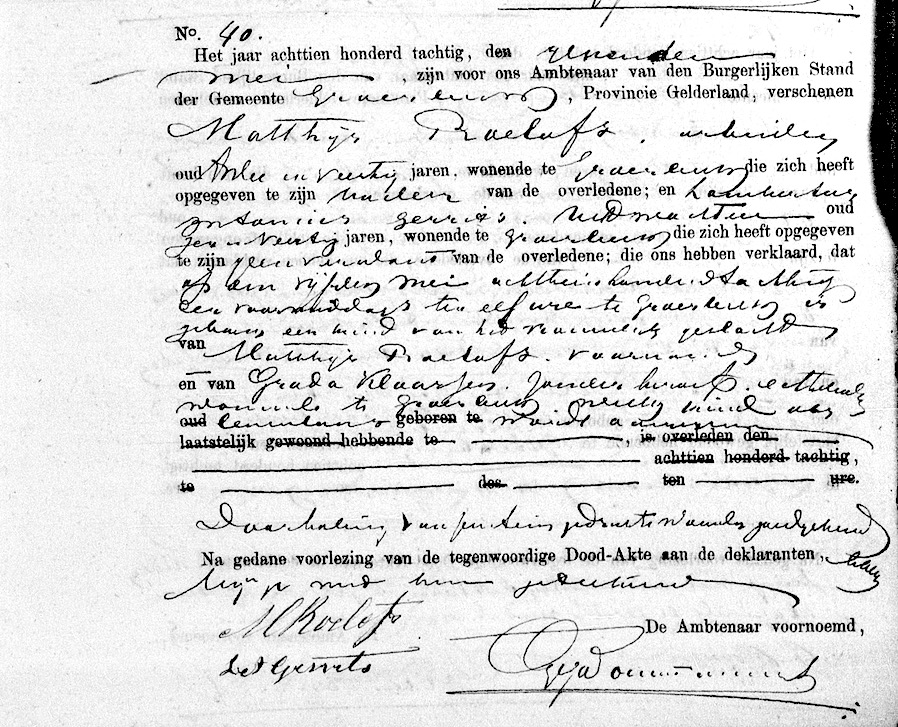 No. 40.
Het jaar achttien honderd tachtig, den zesden
mei, zijn voor ons Ambtenaar van den Burgerlijken Stand
der Gemeente Groesbeek, Provincie Gelderland, verschenen
Matthijs Roelofs, arbeider
oud drie en veertig jaren, wonende te Groesbeek die zich heeft
opgegeven te zijn vader van de overledene; en Lambertus
Antonius Gerrits, Veldwachter oud
en veertig jaren, wonende te Groesbeek die zich heeft opgegeven
te zijn geen van de overledene; die ons hebben verklaard, dat
op den vijfden mei achttien honderd tachtig
des voormiddags ten elf ure te Groesbeek is
geboren een kind van het geslacht
van Matthijs Roelofs, voornoemd
en van Grada Klaassen, zonder beroep, echtelieden
wonende te Groesbeek welk kind als
oud levenloos geboren te wordt aangegeven
laatstelijk gewoond hebbende te, is overleden den
achttien honderd tachtig,
te des ten ure.
Doorhaling van gedrukte woorden goedgekeurd
Na gedane voorlezing van de tegenwoordige Dood-Akte aan de deklaranten, hebben
wij die met hen geteekend
M Roelofs
De Ambtenaar voornoemd,
L A Gerrits